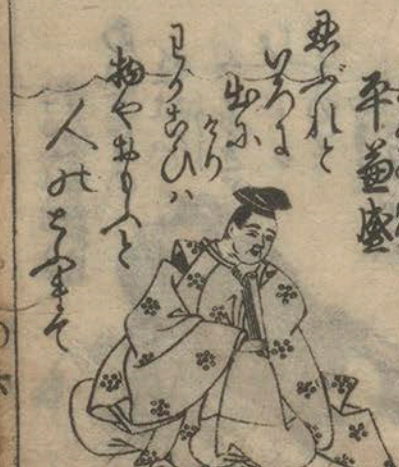 平兼盛
忍ぶれと
いろに
出に
けり
わかこひハ
物やおもふと
人のとふまて